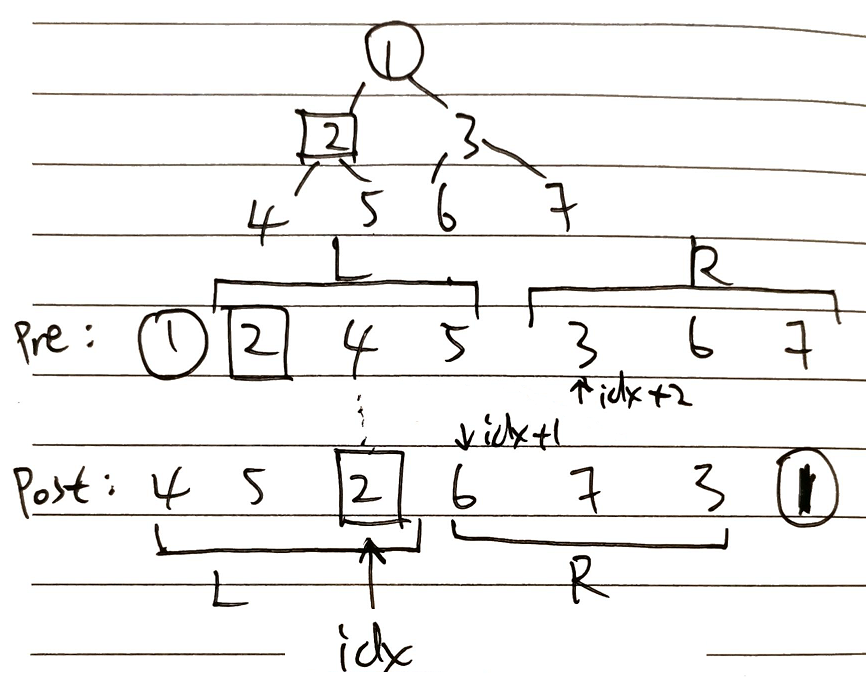 1
2 3
4 5 6 7
L R
Pre: 1 2 4 5 3 6 7
idx+2
idx+1
Post: 4 5 2 6 7 3 1
L R
idx